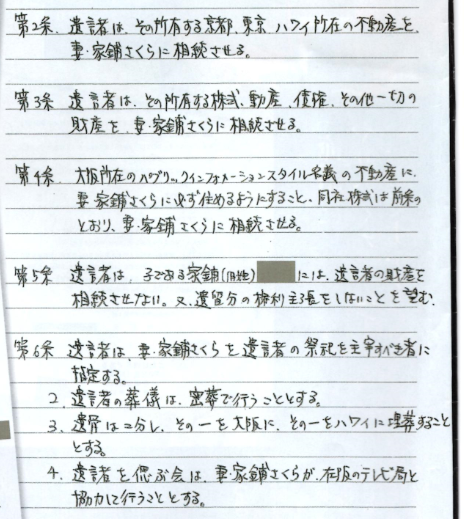 第2条、遺言者は、その所有する京都、東京、ハワイ所在の不動産を、
妻・家鋪さくらに相続させる。
第3条 遺言者は、その所有する株式、動産、債権、その他一切の
財産を、妻・家鋪さくらに相続させる。
第4条 大阪所在のパブリックインフォメーションスタイル名義の不動産に、
妻・家鋪さくらに必ず住めるようにすること、同社株式は前条の
とおり、妻・家鋪さくらに相続させる。
第5条 遺言者は、子である家鋪(旧姓) には、遺言者の財産を
相続させない。又、遺留分の権利主張をしないことを望む。
第6条 遺言者は、妻・家鋪さくらを遺言者の祭祀を主宰すべき者に
指定する。
2. 遺言者の葬儀は、密葬で行うこととする。
3. 遺骨は二分し、その一を大阪に、その一をハワイに埋葬すること
とする。
4. 遺言者を偲ぶ会は、妻・家鋪さくらが、在阪のテレビ局と
協力して行うこととする。